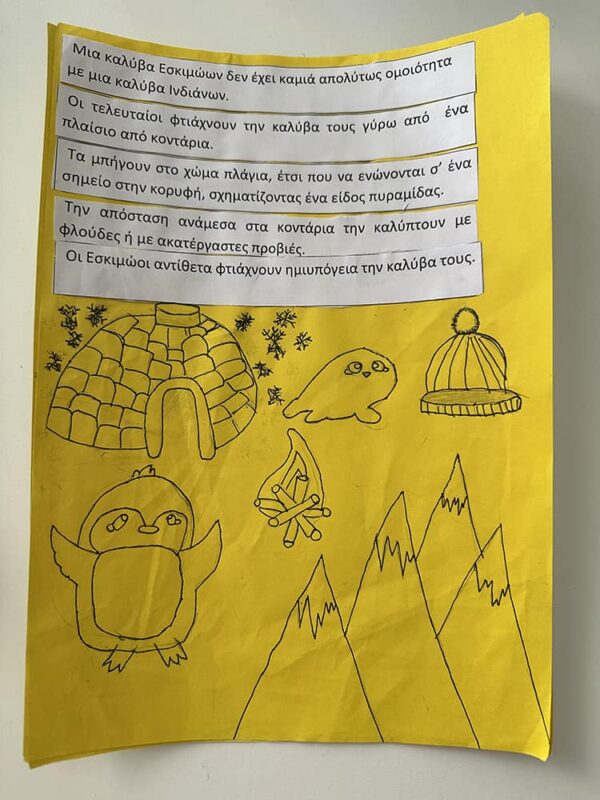 Μια καλύβα Εσκιμώων δεν έχει καμιά απολύτως ομοιότητα
με μια καλύβα Ινδιάνων.
Οι τελευταίοι φτιάχνουν την καλύβα τους γύρω από ένα
πλαίσιο από κοντάρια.
Τα μπήγουν στο χώμα πλάγια, έτσι που να ενώνονται σ’ ένα
σημείο στην κορυφή, σχηματίζοντας ένα είδος πυραμίδας.
Την απόσταση ανάμεσα στα κοντάρια την καλύπτουν με
φλούδες ή με ακατέργαστες προβιές.
Οι Εσκιμώοι αντίθετα φτιάχνουν ημιυπόγεια την καλύβα τους.